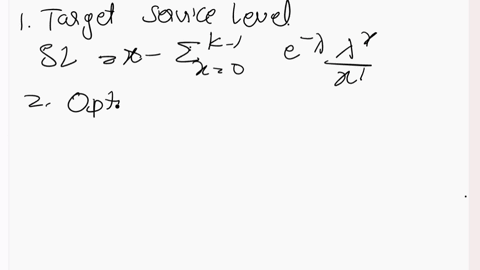 1. Target Service Level
SL = x - Σ_{x=0}^{k-1} e^{-λ} λ^x / x!
2. Opt